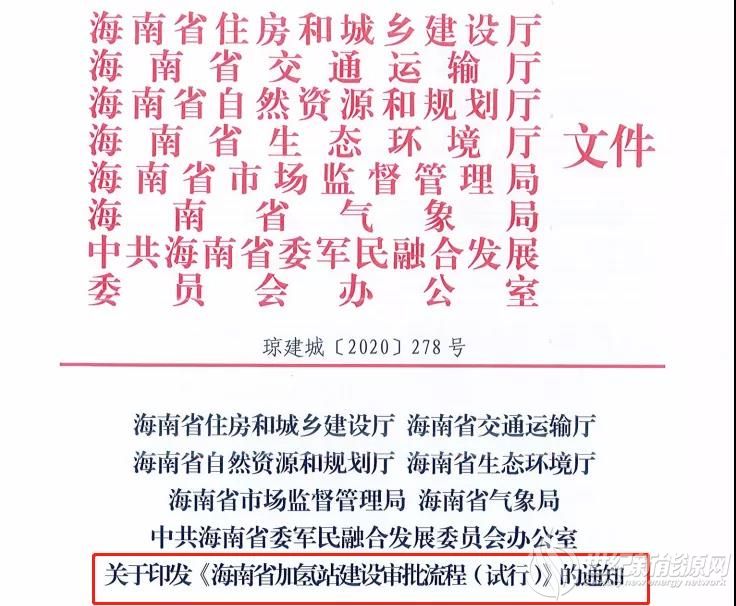 海南省住房和城乡建设厅
海南省交通运输厅
海南省自然资源和规划厅
海南省生态环境厅
文件
海南省市场监督管理局
海南省气象局
中共海南省委军民融合发展
委员会办公室
琼建城〔2020〕278号
海南省住房和城乡建设厅 海南省交通运输厅
海南省自然资源和规划厅 海南省生态环境厅
海南省市场监督管理局 海南省气象局
中共海南省委军民融合发展委员会办公室
关于印发《海南省加氢站建设审批流程(试行)》的通知
世纪新能源网